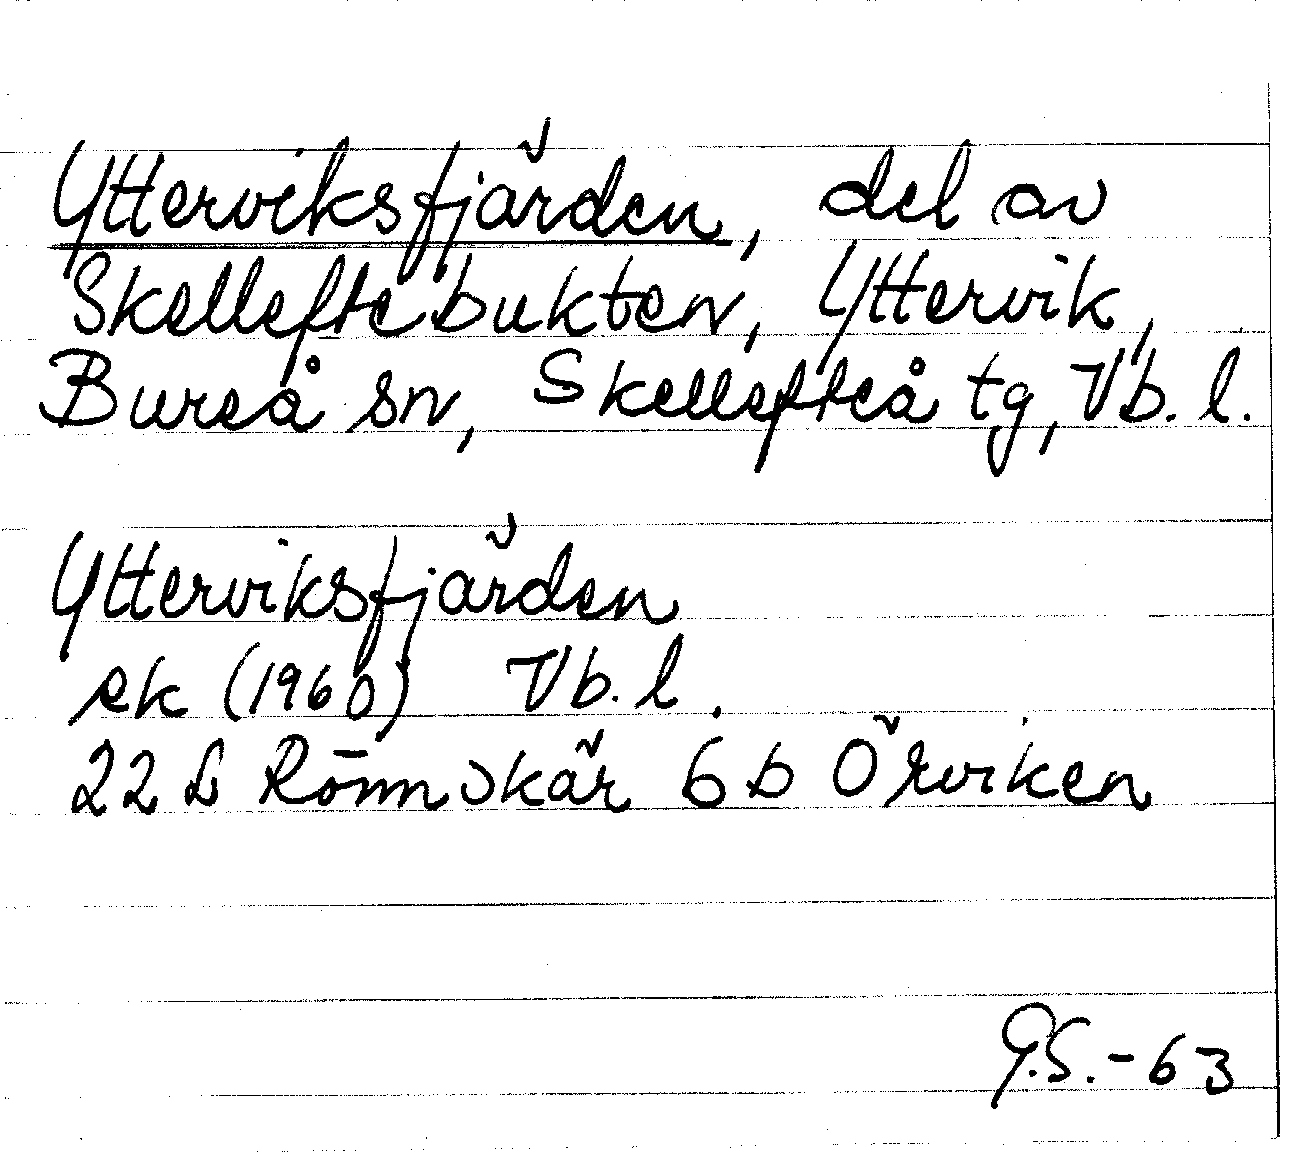 Ytterviksfjärden, del av
Skelleftebukten, Yttervik,
Bureå sn, Skellefteå tg, Vb. l.
Ytterviksfjärden
ek (1960) Vb. l.
22 L Rönnskär 6 b Örviken
G.S. - 63